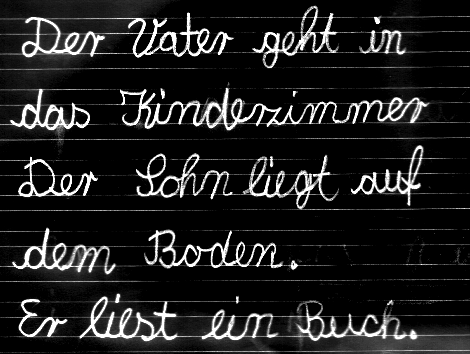 Der Vater geht in
das Kinderzimmer
Der Sohn liegt auf
dem Boden.
Er liest ein Buch.